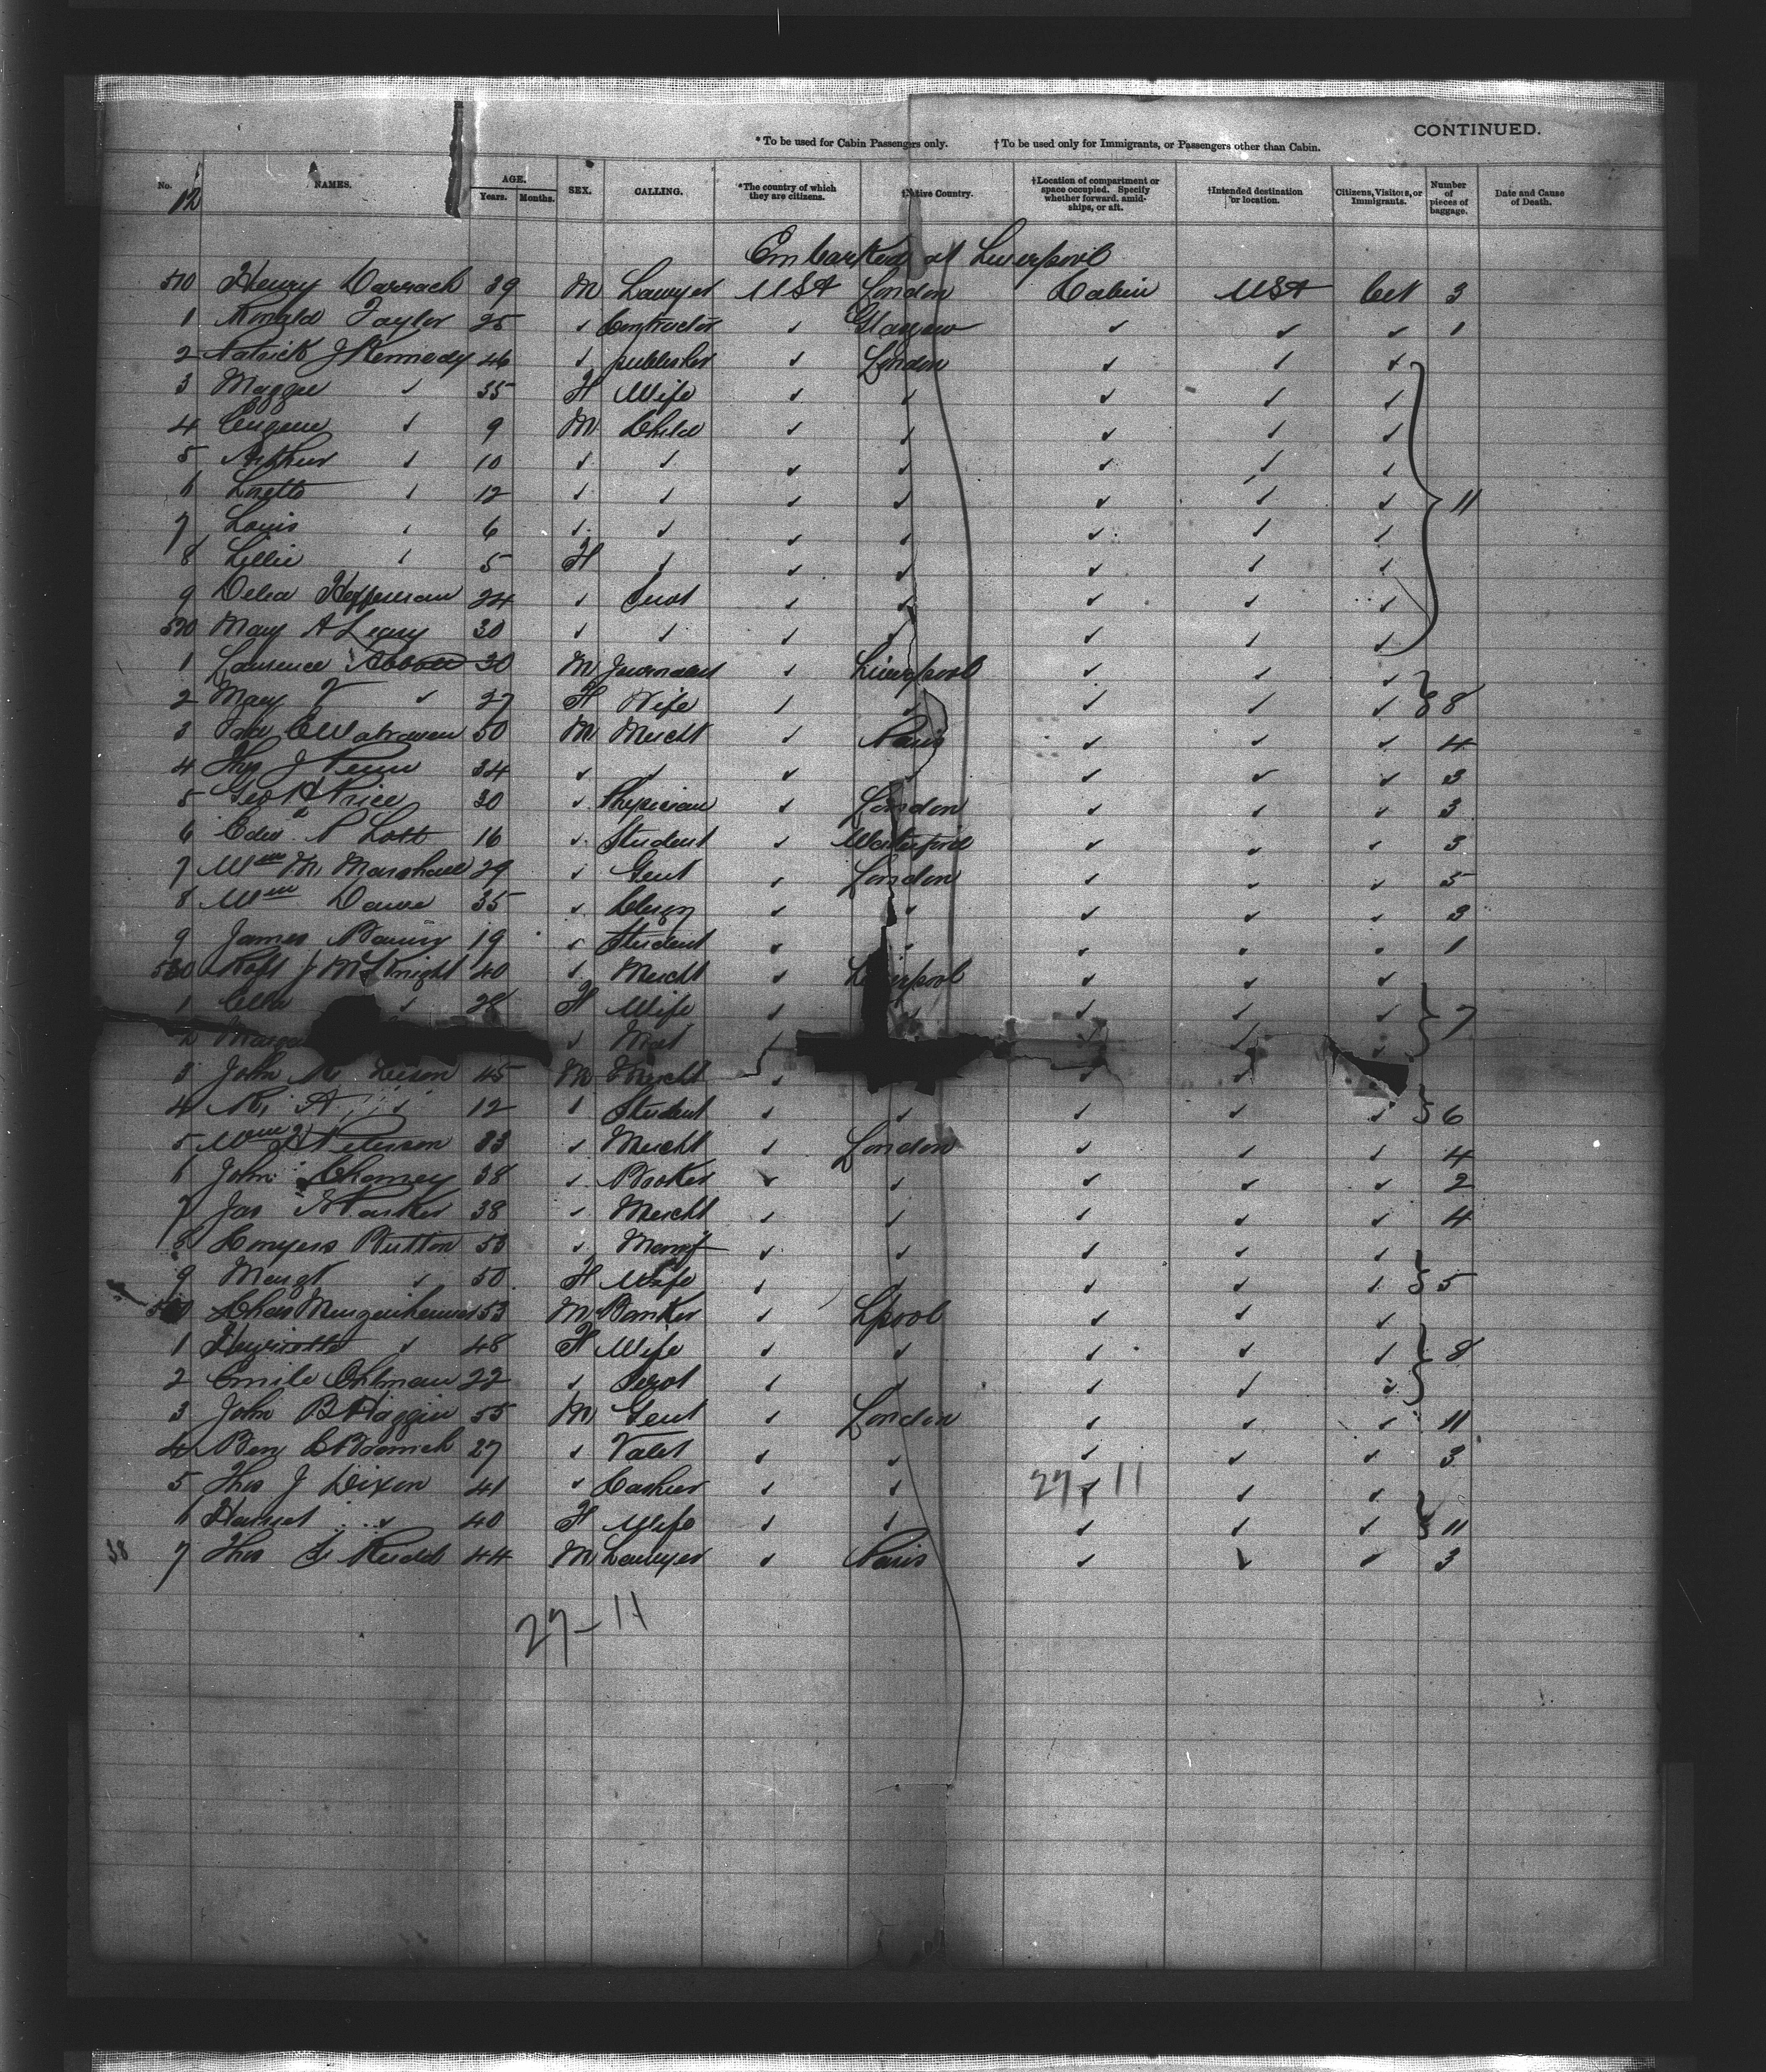 CONTINUED.
* To be used for Cabin Passengers only. † To be used only for Immigrants, or Passengers other than Cabin.
No. NAMES. AGE. Years. Months. SEX. CALLING. *The country of which they are citizens. †Native Country. †Location of compartment or space occupied. Specify whether forward, amidships, or aft. †Intended destination or location. Citizens, Visitors, or Immigrants. Number of pieces of baggage. Date and Cause of Death.
12
Embarked at Liverpool
510 Henry Darrach 39 M Lawyer USA London Cabin USA Cit 3
1 Ronald Taylor 25 ✓ Contractor ✓ Glasgow ✓ ✓ ✓ 1
2 Patrick J Kennedy 46 ✓ publisher ✓ London ✓ ✓ ✓
3 Maggie ✓ 35 F Wife ✓ ✓ ✓ ✓ ✓
4 Eugene ✓ 9 M Child ✓ ✓ ✓ ✓ ✓
5 Arthur ✓ 10 ✓ ✓ ✓ ✓ ✓ ✓ ✓
6 Loretto ✓ 12 ✓ ✓ ✓ ✓ ✓ ✓ ✓ 11
7 Louis ✓ 6 ✓ ✓ ✓ ✓ ✓ ✓ ✓
8 Lillie ✓ 5 F ✓ ✓ ✓ ✓ ✓ ✓
9 Delia Heffernan 24 ✓ ✓ ✓ ✓ ✓ ✓
520 Mary A Leary 30 ✓ ✓ ✓ ✓ ✓ ✓ ✓
1 Lawrence Abbott 30 M Journalist ✓ Liverpool ✓ ✓ ✓
2 Mary V ✓ 27 F Wife ✓ ✓ ✓ ✓ ✓ 8
3 50 M Mercht ✓ Paris ✓ ✓ ✓ 4
4 Thos J 34 ✓ ✓ ✓ ✓ ✓ ✓ ✓ 3
5 Geo H Price 30 ✓ Physician ✓ London ✓ ✓ ✓ 3
6 Edwd P Lott 16 ✓ Student ✓ Waterford ✓ ✓ ✓ 3
7 Wm M Marshall 29 ✓ Gent ✓ London ✓ ✓ ✓ 5
8 Wm 35 ✓ Clergy ✓ ✓ ✓ ✓ ✓ 3
9 James 19 ✓ Student ✓ ✓ ✓ ✓ ✓ 1
530 Robt J McKnight 40 ✓ Mercht ✓ Liverpool ✓ ✓ ✓
1 Ella ✓ 28 F Wife ✓ ✓ ✓ ✓ ✓ 7
2 ✓
3 John R 45 M Mercht ✓ ✓ ✓
4 R A ✓ 12 ✓ Student ✓ ✓ ✓ ✓ ✓ 6
5 Wm Peterson 33 ✓ Mercht ✓ London ✓ ✓ ✓ 4
6 John 38 ✓ ✓ ✓ ✓ ✓ ✓ 2
7 Jas Parker 38 ✓ Mercht ✓ ✓ ✓ ✓ ✓ 4
8 Conyers Button 53 ✓ Manf ✓ ✓ ✓ ✓ ✓
9 Margt ✓ 50 F Wife ✓ ✓ ✓ ✓ ✓ 5
540 Chas 53 M Banker ✓ Lpool ✓ ✓ ✓
1 Henrietta ✓ 48 F Wife ✓ ✓ ✓ ✓ ✓ 8
2 Emile Ohlman 22 ✓ ✓ ✓ ✓ ✓ ✓
3 John B Haggin 55 M Gent ✓ London ✓ ✓ ✓ 11
4 Ben 27 ✓ Valet ✓ ✓ ✓ ✓ ✓ 3
5 Thos J Dixon 41 ✓ Cashier ✓ ✓ ✓ ✓ ✓
27 11
6 Harriet ✓ 40 F Wife ✓ ✓ ✓ ✓ ✓ 11
38 7 Thos 44 M Lawyer ✓ Paris ✓ ✓ ✓ 3
27-11